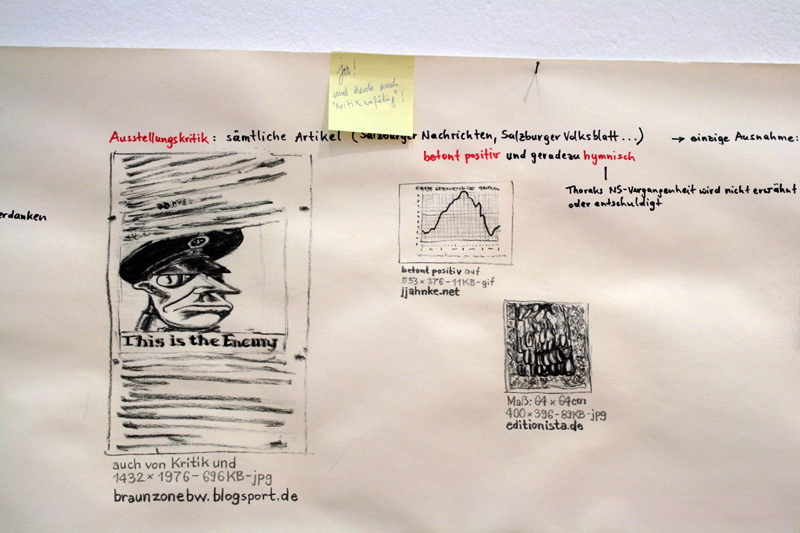 ja!
und heute auch
"Kritikunfähig"!
Ausstellungskritik: sämtliche Artikel (Salzburger Nachrichten, Salzburger Volksblatt...) → einzige Ausnahme:
betont positiv und geradezu hymnisch
Thoraks NS-Vergangenheit wird nicht erwähnt
oder entschuldigt
erdanken
This is the Enemy
auch von Kritik und
1432 x 1976 - 696KB - jpg
braunzonebw.blogsport.de
betont positiv auf
553 x 376 - 11KB - gif
jjahnke.net
Maß: 64 x 64cm
400 x 396 - 89KB - jpg
editionista.de